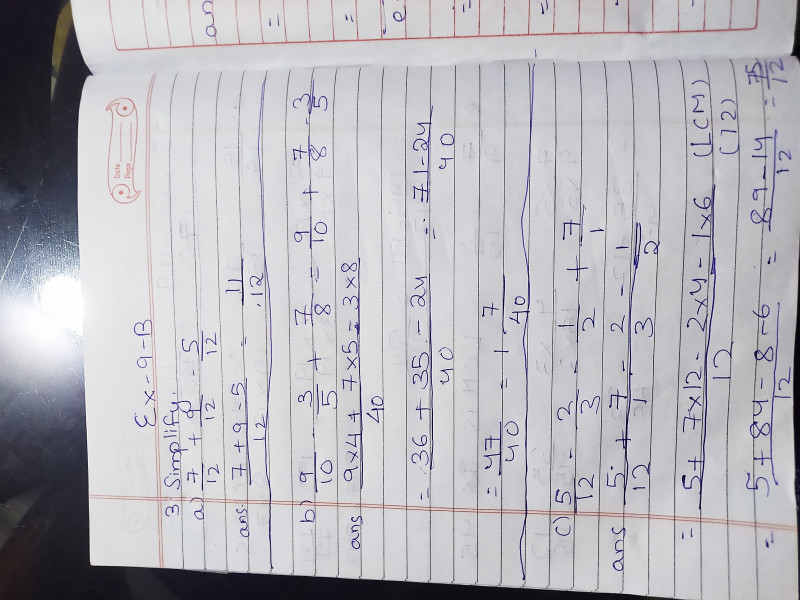 Date
Page
Ex-9-B
3 Simplify.
a) 7/12 + 9/12 - 5/12
ans. 7+9-5/12 = 11/12
b) 9/10 - 3/5 + 7/8 = 9/10 + 7/8 - 3/5
ans 9x4 + 7x5 - 3x8/40
= 36 + 35 - 24/40 = 71-24/40
= 47/40 = 1 7/40
c) 5/12 - 2/3 - 1/2 + 7/1
ans 5/12 + 7/1 - 2/3 - 1/2
= 5+ 7x12 - 2x4 - 1x6/12 (LCM) (12)
= 5+84-8-6/12 = 89-14/12 = 75/12
an
=
=